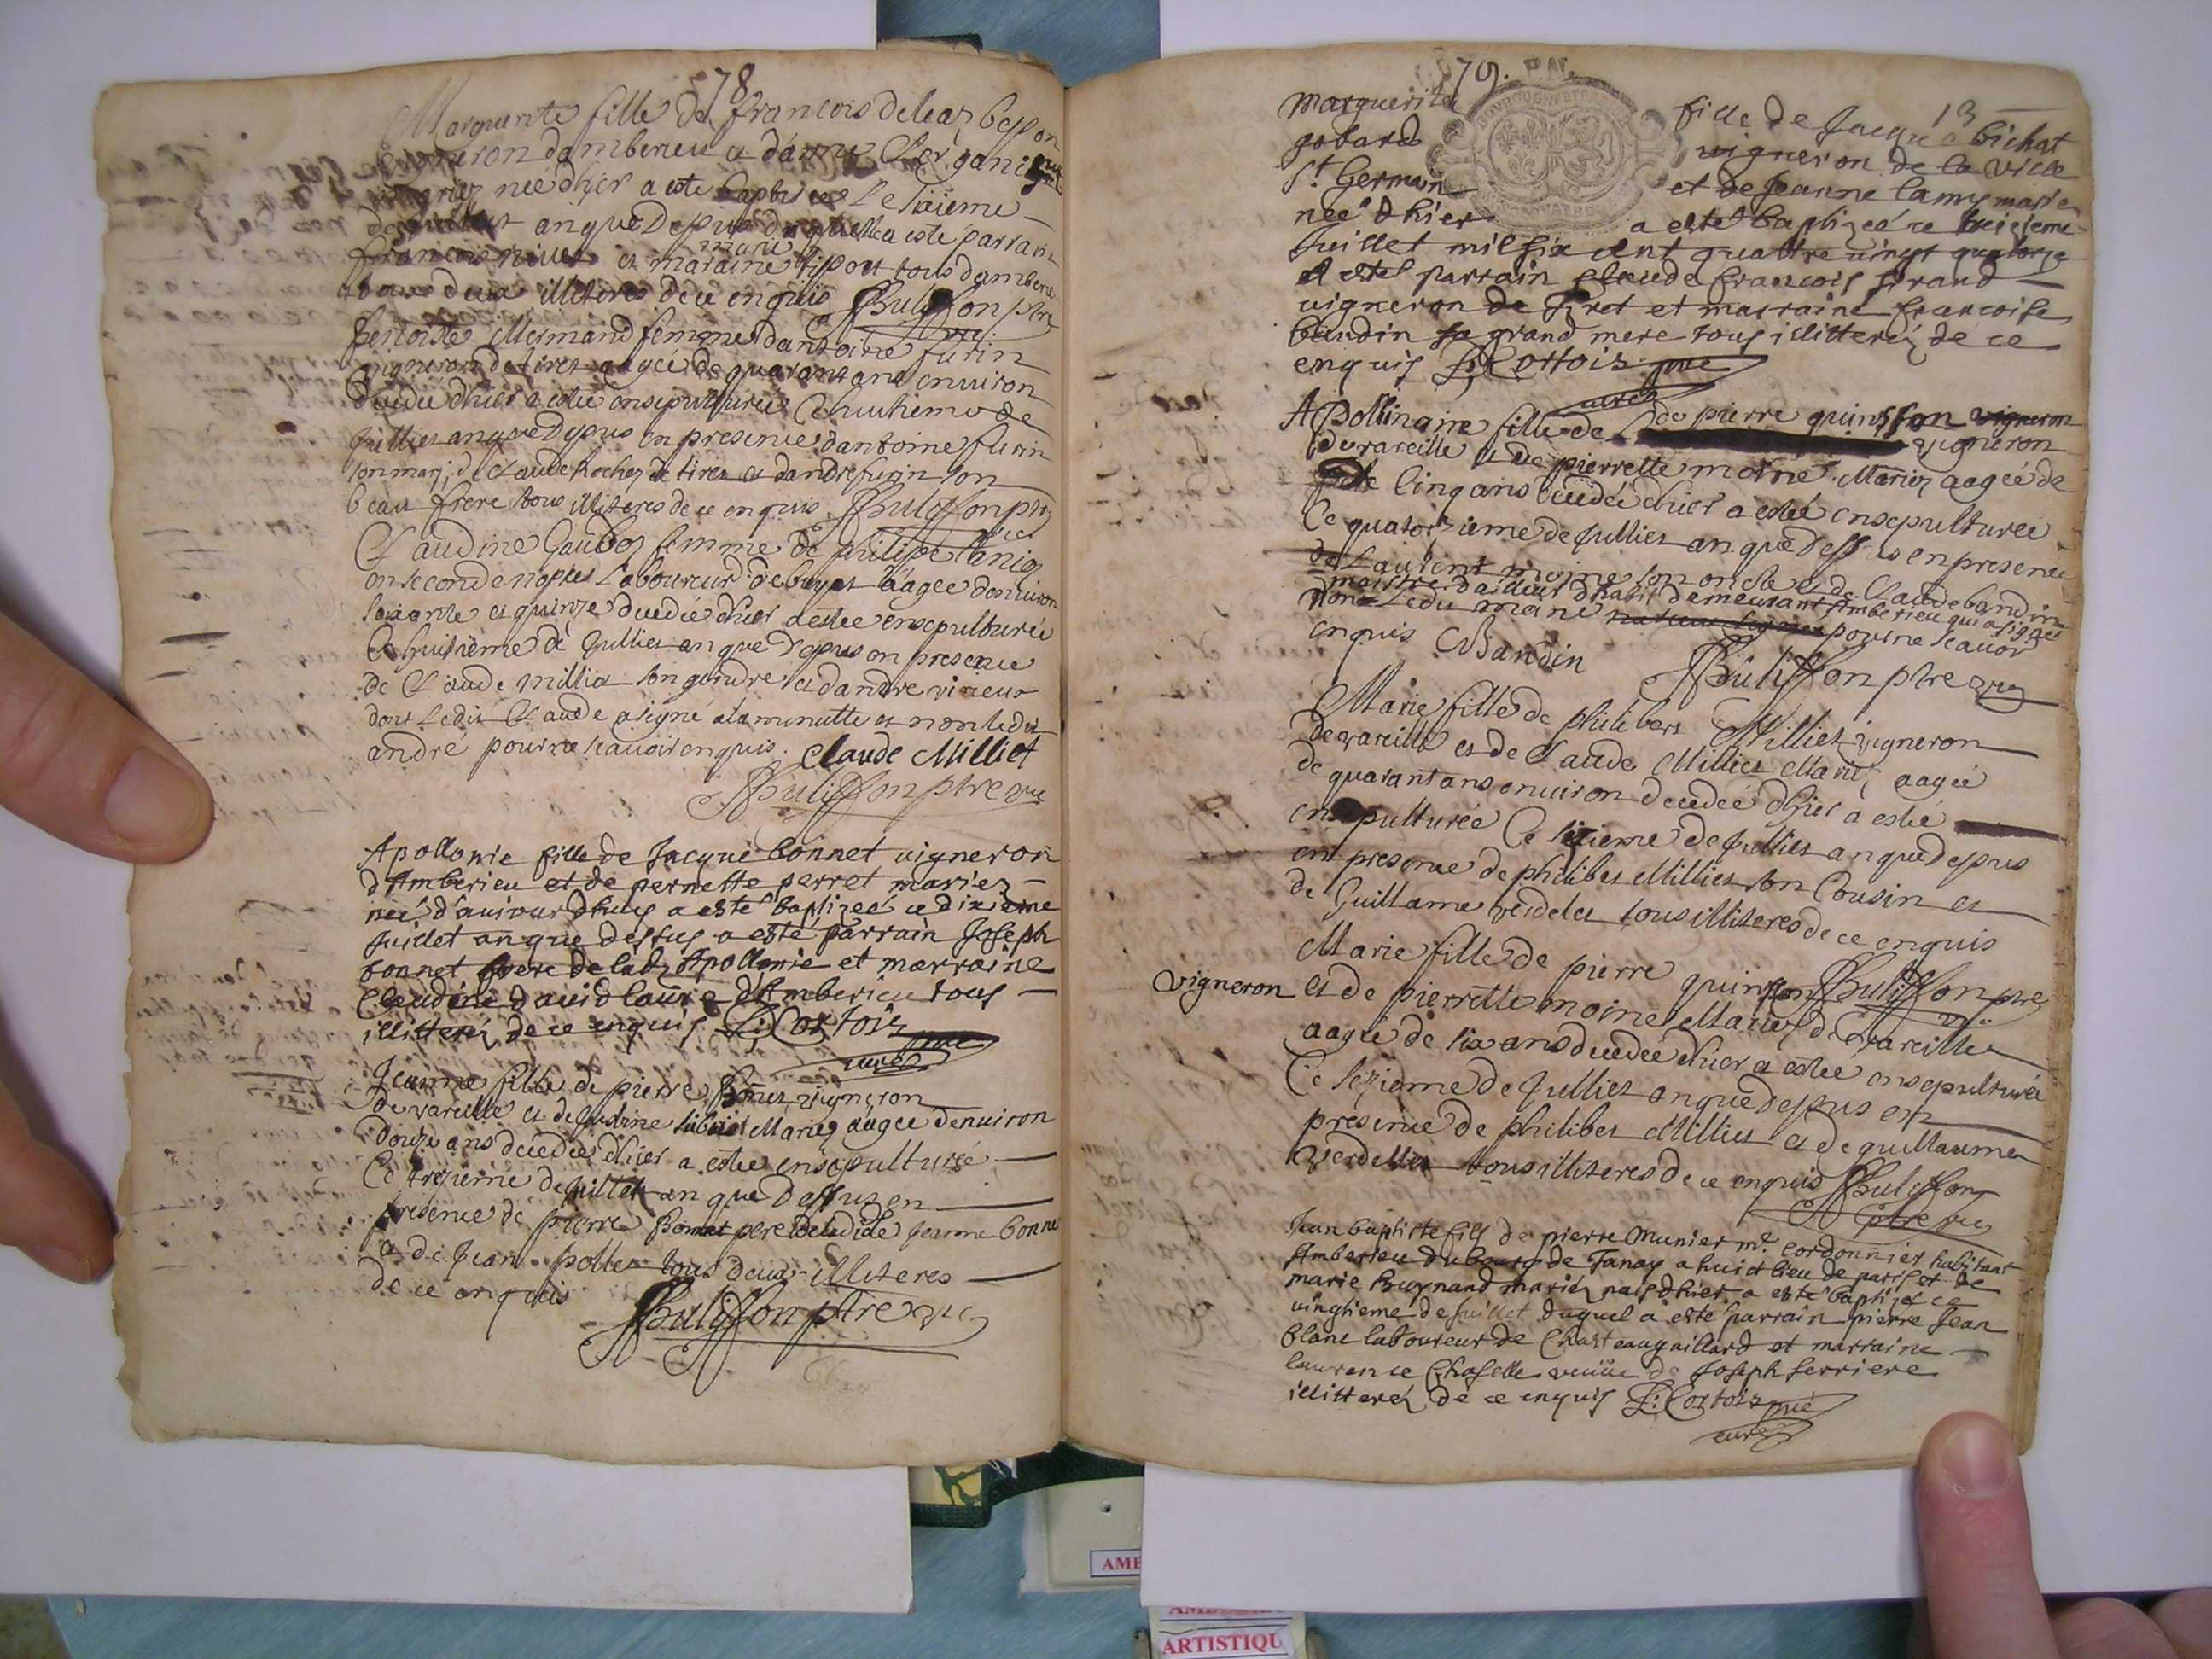 78
Marguerite fille de francois deleaz bepon
vigneron damberieu et danne
mariez neé d'hier a esté baptisee Le
de Juillet an que Depus duquel a esté parrain
francois et maraine marie tipoet tous damberieu
tous deux illiteres de ce enquis JBulifson ptre
curé
benoiste Mermand femme dantoine furin
vigneron de tiret aagée de quarant ans environ
decedée d'hier a estée ensepulturée Ce huitiemede
Jullier an que Depus en presence dantoine furin
son mary, de Claude Rochez de tiret et dandré furin son
beau frere tous illiteres de ce enquis JBulifson ptre
curé
Claudine Gaudoz femme de philipe
en seconde nopses Laboureur de aagée denviron
soixante et quinze decedée d'hier a estee ensepulturée
Ce huitième de Jullier an que Depus en presence
de Claude milliet son gendre et dandre vineur
dont Ledit Claude a signé a la minutte et non ledit
andré pour ne scavoir enquis. Claude Milliet
JBulifson ptre curé
Apollonie fille de Jacque bonnet vigneron
d'Amberieu et de pernette perret mariez
neé d'aujourdhuy a esté baptizeé ce dixieme
Juillet an que dessus a esté parrain Joseph
bonnet frere de lad. Apollonie et marraine
Claudine david laurie d'Amberieu tous
illitterez de ce enquis L: Cortois ptre
curé
Jeanne fille de pierre Bonet vigneron
de vareille et de Mariez aagée denviron
douze ans decedée d'hier a estee ensepulturée
Ce trezieme de juillet an que Dessus en
presence de pierre Bonnet pere deladite Jeanne bonnet
et de Jean pollet tous deux illiteres
de ce enquis
JBulifson ptre curé
79.
13
marguerite fille de Jacque bichat
gobard vigneron de la ville
St. Germain et de Jeanne lamy mariez
neé d'hier a esté baptizeé ce treizieme
Juillet mil six cent quattre vingt quatorze
a esté parrain Claude francois girand
vigneron de Tiret et marraine francoise
baudin sa grand mere tous illitterez de ce
enquis L: Cortois ptre
curé
Apollinaire fille de de pierre quinsson vigneron
devareille et de pierrette moine Mariez aagée de
Cinq ans decedée d'hier a estée ensepulturée
Ce quatorzieme de Jullier an que Dessus en presence
de Laurent moine son oncle et de Claude baudin
maistre tailleur d'habit demeurant Amberieu qui a signé
non Ledit moine pour ne scavoir
enquis CBaudin
JBulifson ptre curé
Marie fille de philibert Millier vigneron
de vareille et de Claude Millier Mariez, aagée
de quarant ans environ decedée d'hier a esté
ensepulturée Ce sezieme de Jullier an que depus
en presence de philibert Millier son Cousin et
de Guillaume verdelet tous illiteres de ce enquis
JBulifson ptre
curé
Marie fille de pierre quinsson
vigneron et de pierrette moine Mariez de vareille
aagée de six ans decedée d'hier a estée ensepulturée
Ce sezieme de Jullier an que Depus en
presence de philibert Millier et de guillaume
Verdellet tous illiteres de ce enquis JBulifson
ptre curé
Jean baptiste fils de pierre munier me. cordonnier habitant
Amberieu du bourg de Fanay a huict lieu de paris et de
marie bugnand mariez nais d'hier a esté baptizé ce
vingtieme de Juillet duquel a esté parrain pierre Jean
blanc laboureur de Chasteaugaillard et marraine
laurence Chaselle veuve de Joseph ferriere
illitterez de ce enquis L: Cortois ptre
curé
ARTISTIQU